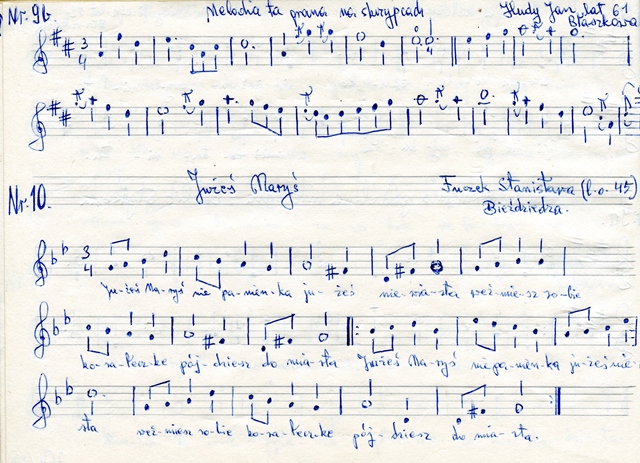 Nr. 9b Melodia ta grana na skrzypcach Hudy Jan, lat 61
Błaszkowa
3
4
Nr. 10. Jużeś Maryś Fuczek Stanisława (l.o. 45)
Bieździedza.
3
4
Ju-żeś Ma-ryś nie pa-nien-ka ju-żeś nie-wia-sta weź-mie-sz so-bie
ko-sa-łecz-kę pój-dziesz do mia-sta Jużeś Ma-ryś nie pa-nien-ka ju-żeś nie
sta weź-miesz so-bie ko-sa-łecz-kę pój-dziesz do mia-sta.